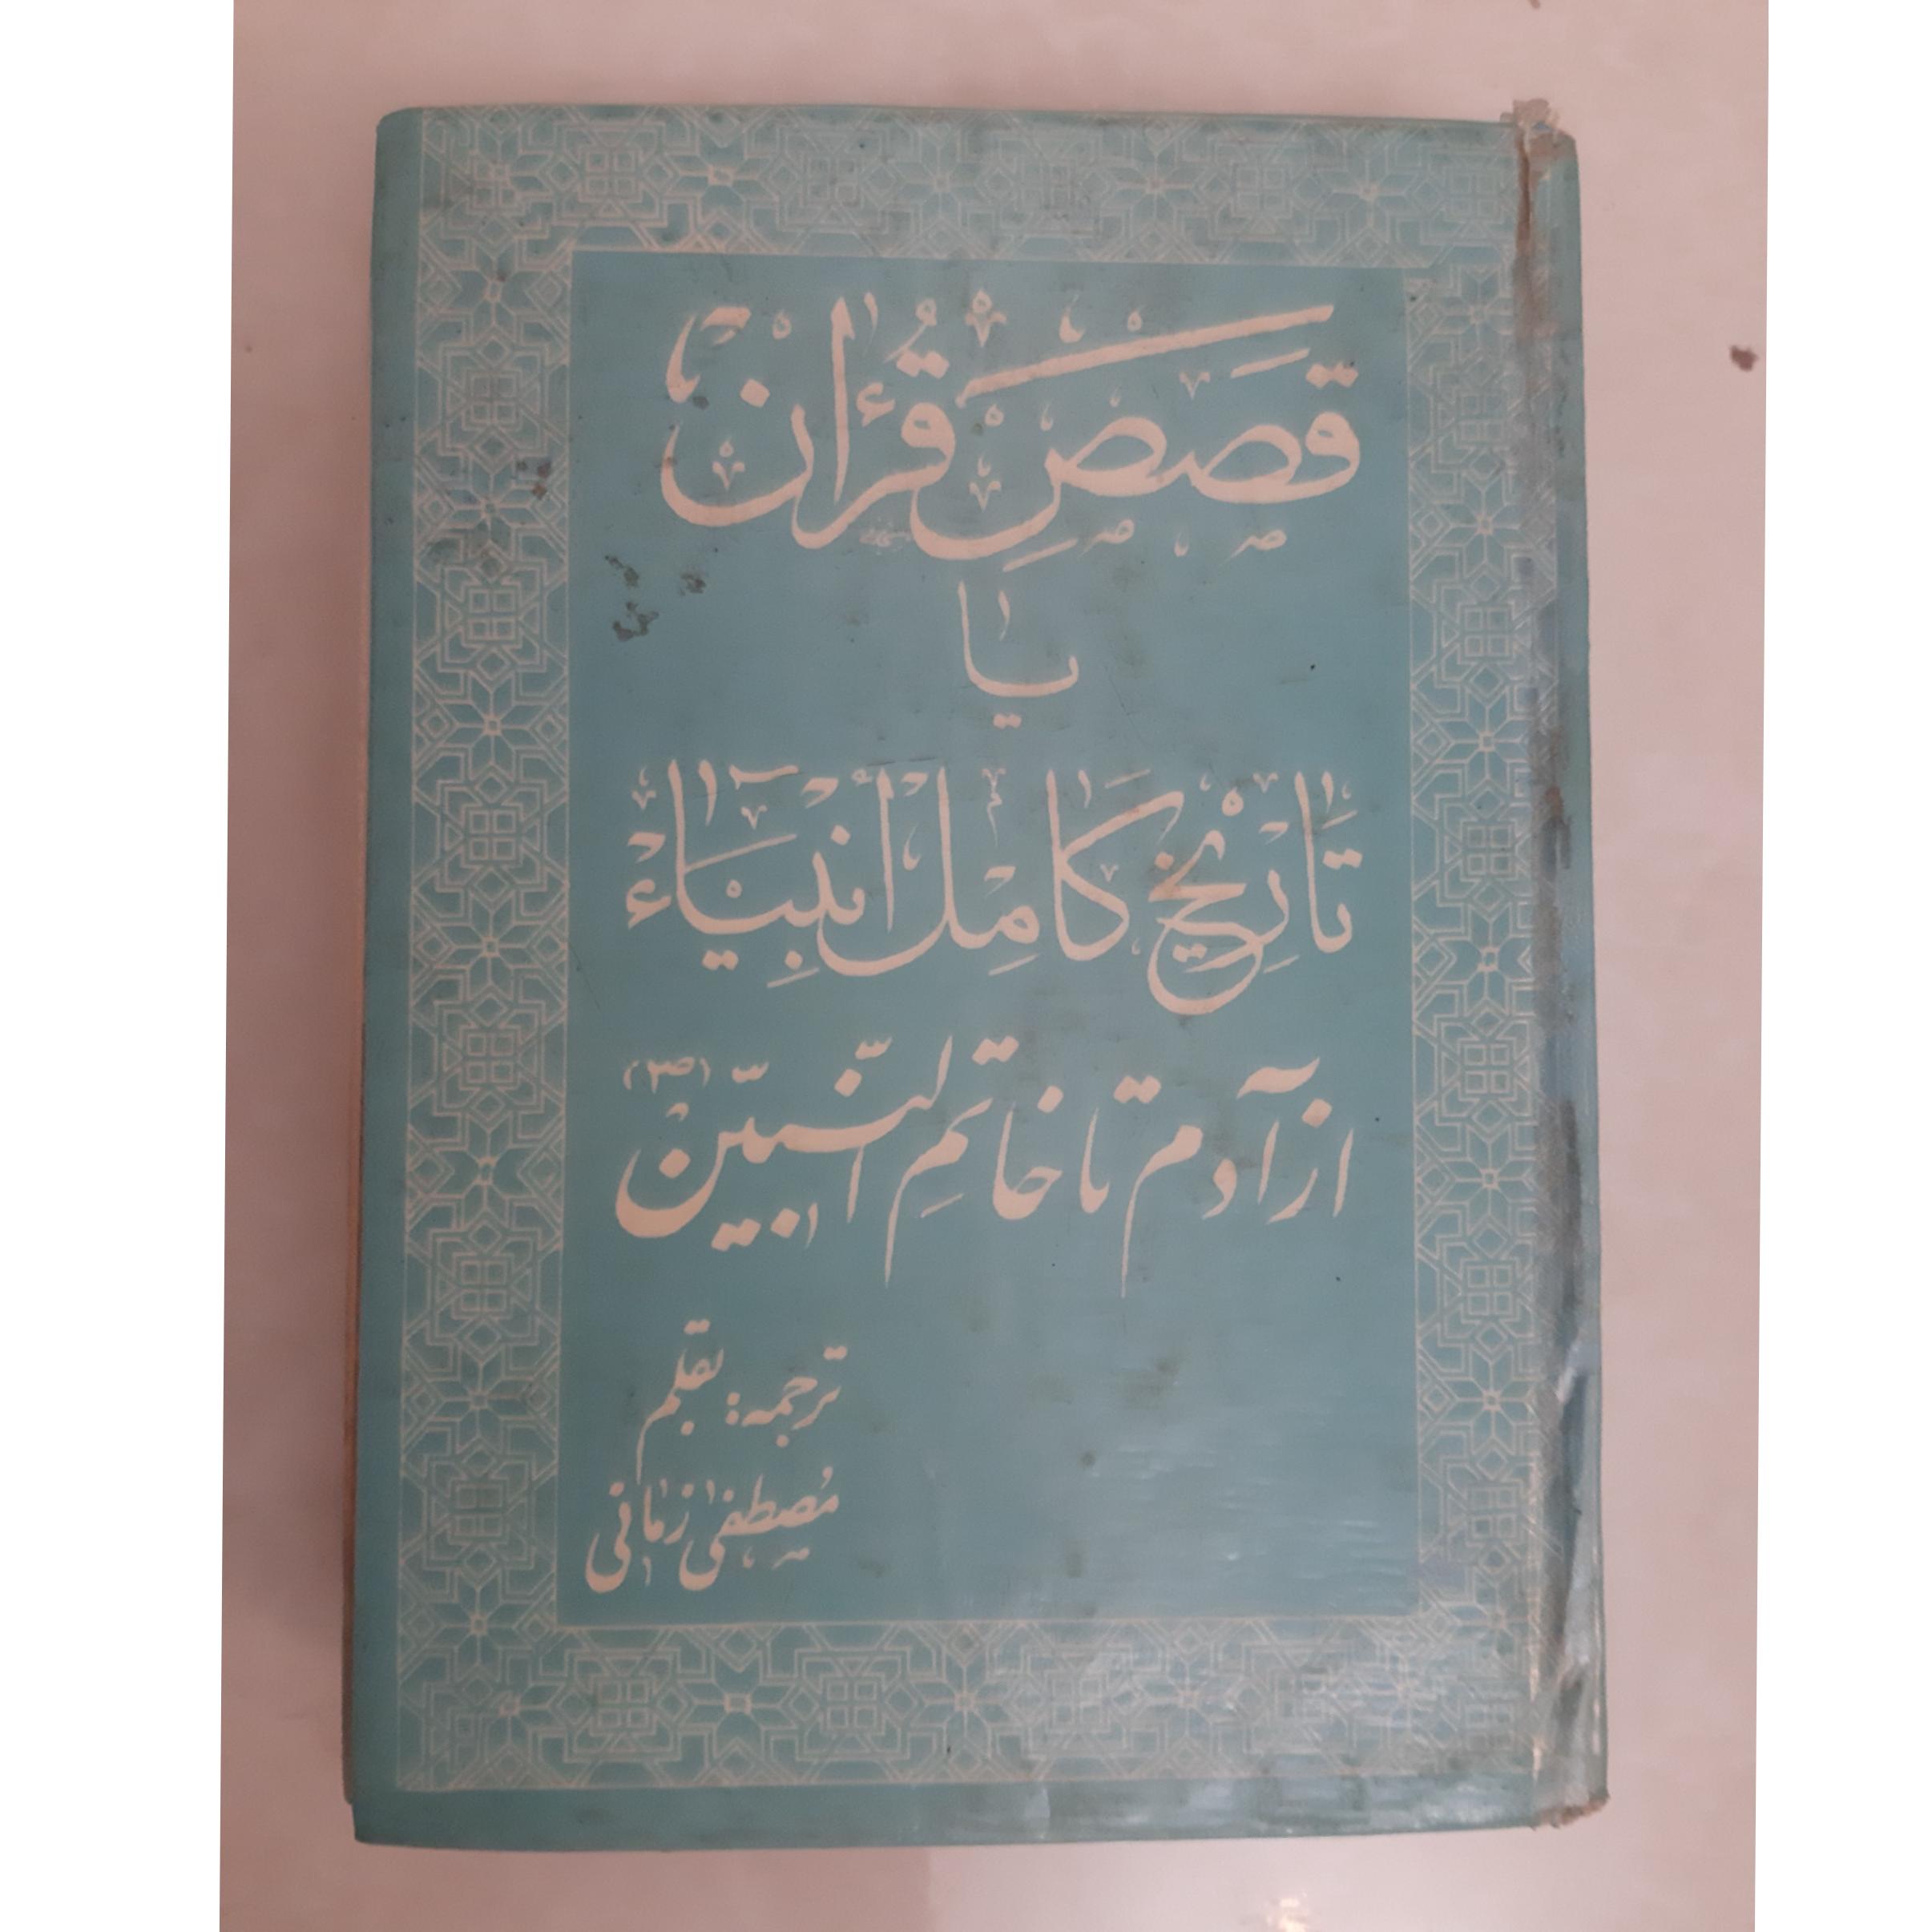 قصص قرآن
یا
تاریخ کامل انبیاء
از آدم تا خاتم النبیین (ص)
ترجمه: بقلم
مصطفی زمانی